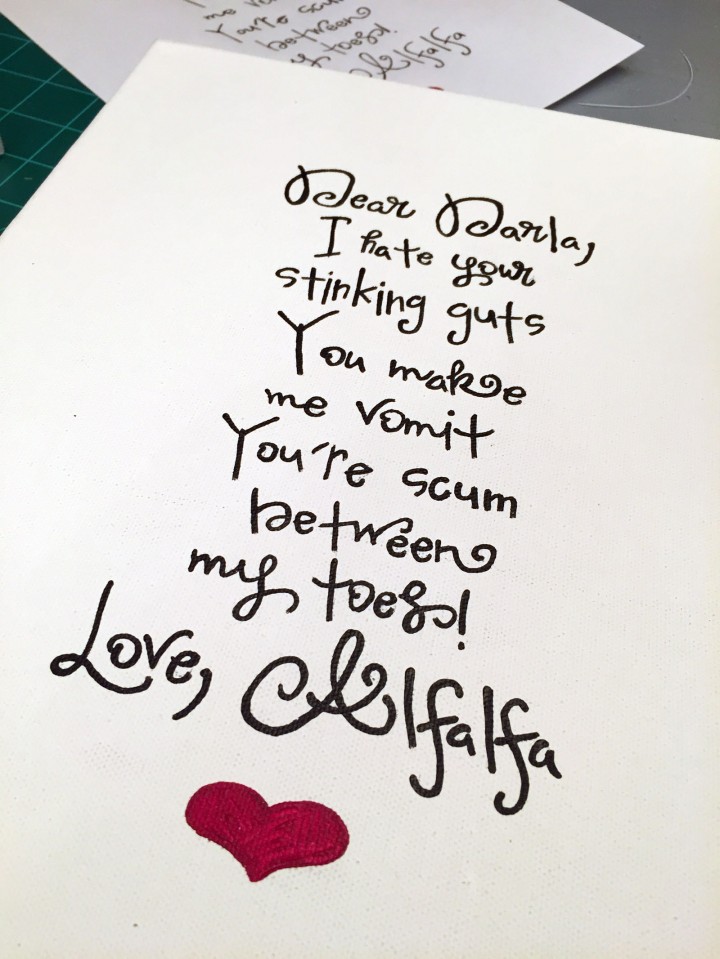 me
You're scum
between
my toes!
Alfalfa
Dear Darla,
I hate your
stinking guts
You make
me vomit
You're scum
between
my toes!
Love, Alfalfa